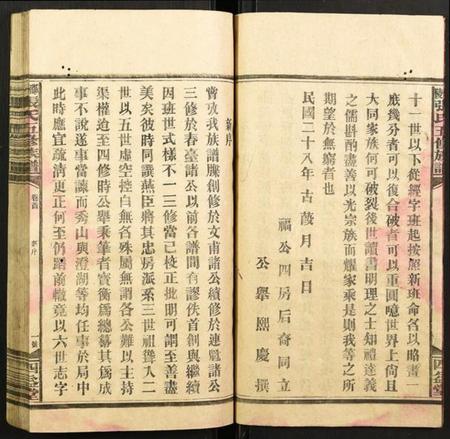 十一世以下從經字班起按照新班命名以略畫一
庶幾分者可以復合破者可以重圓噫世界上尚且
大同家族何可破裂後世讀書明理之士知禮達義
之儒斟酌盡善以光宗族而耀家乘是則我等之所
期望於無窮者也
民國二十八年 古蕤月吉日
福公四房后裔同立
公舉熙慶撰
張氏五修族譜
四益堂
新序
嘗攷我族譜牒創修於文甫諸公續修於連璧諸公
三修於春臺諸公以前各譜間有謬佚首創與繼續
因班世式樣不一三修當己校正批明可謂至善盡
美矣彼時阿讚燕臣將其忠房派系三世祖聳入二
世以五世虛空控白無名殊屬無謂各公難以主持
渠權迨至四修時公舉秉筆者寶衡儒總纂其爲成
事不說遂事當諫而秀山與澄湖等均任事於局中
此時應宜疏清更正何至仍蹈前轍竟以六世志字
張氏五修族譜
卷首
新序
一號
四益堂